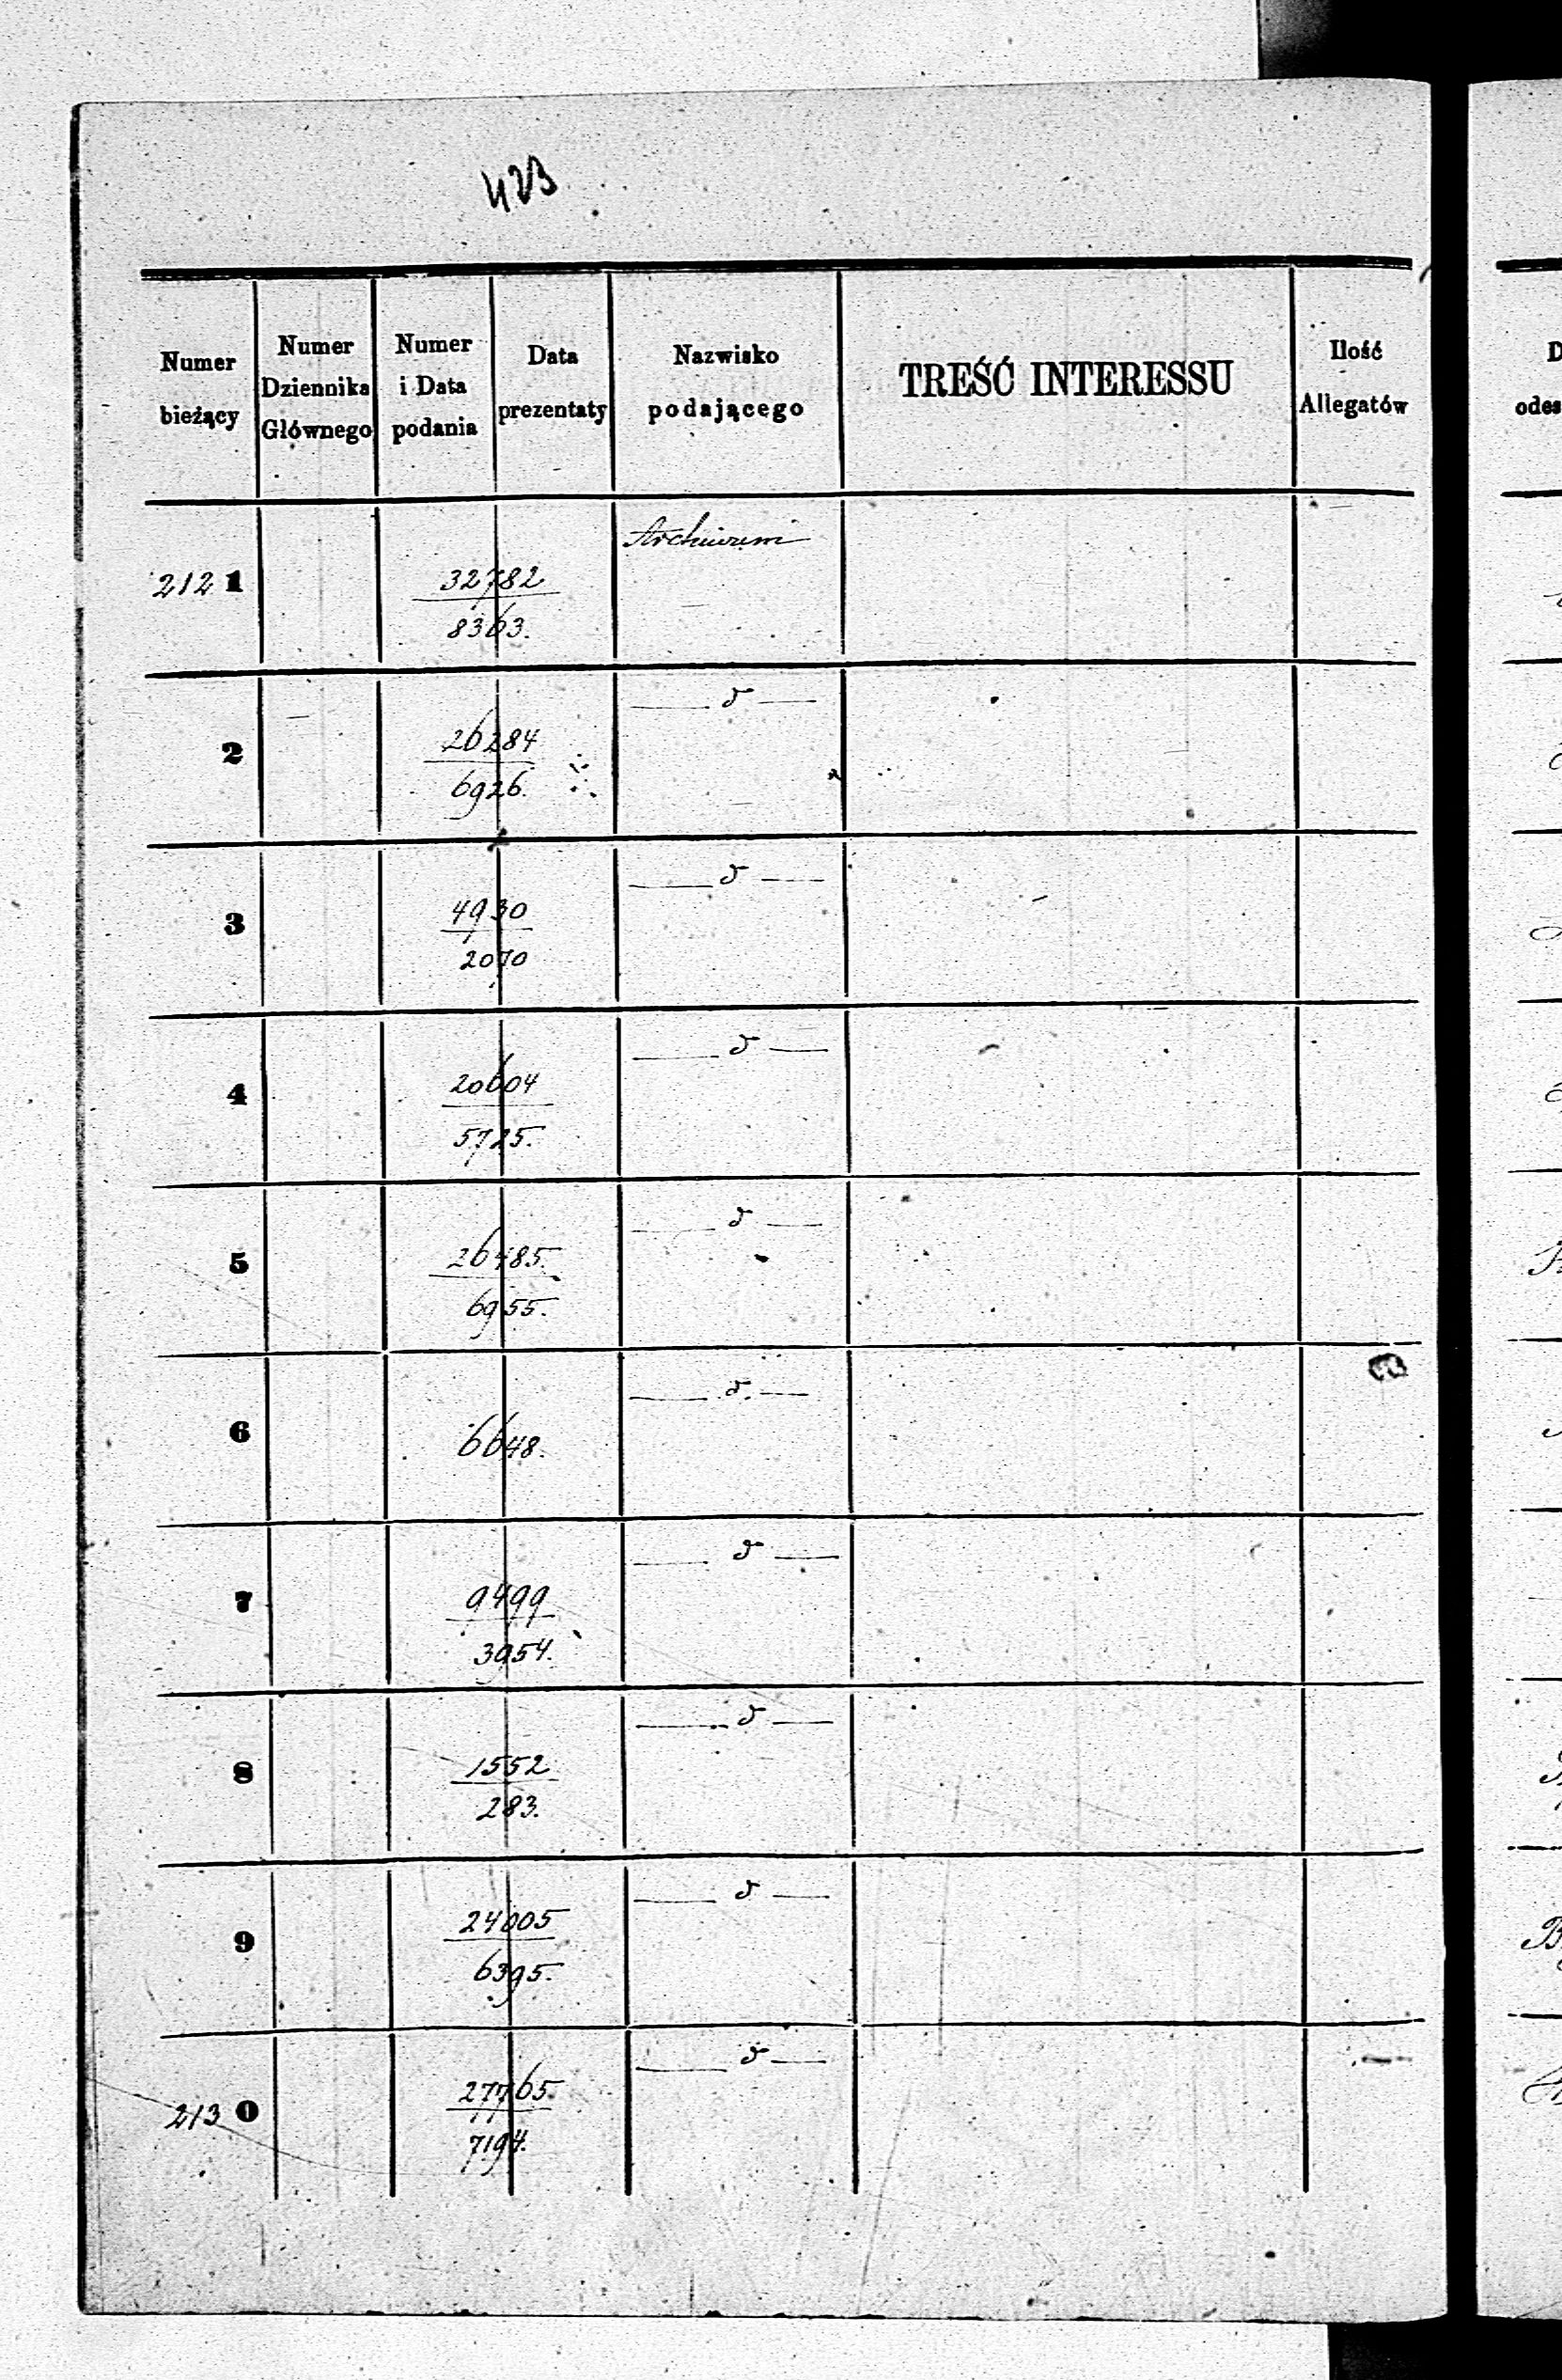 423
Numer bieżący
Numer Dziennika Głównego
Numer i Data podania
Data prezentaty
Nazwisko podającego
TREŚĆ INTERESSU
Ilość Allegatów
Archiwum
2121
32782
8363.
d
2
26284
6926.
d
3
4930
2070
d
4
20604
5725.
d
5
26485.
6955.
d.
6
6648.
d
7
9499
3954.
d
8
1552
283.
d
9
24005
6395.
d
2130
27765.
7194.